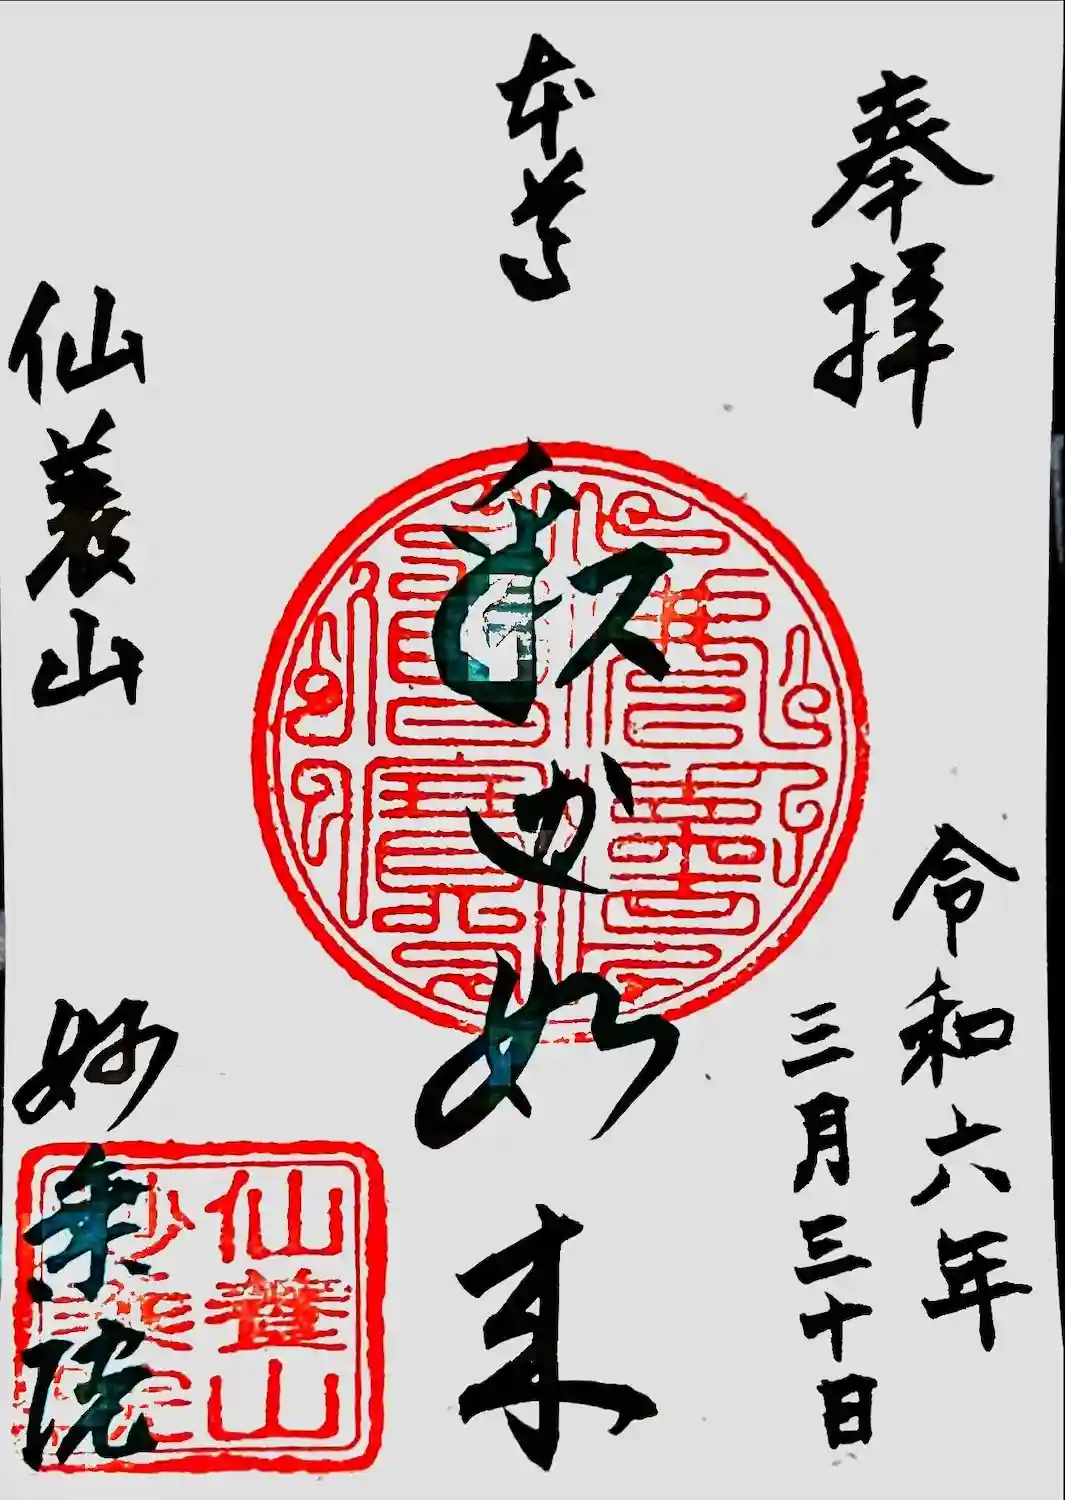 奉拝
令和六年
三月三十日
本尊
釈迦如来
仙養山
妙乗院
仙養山